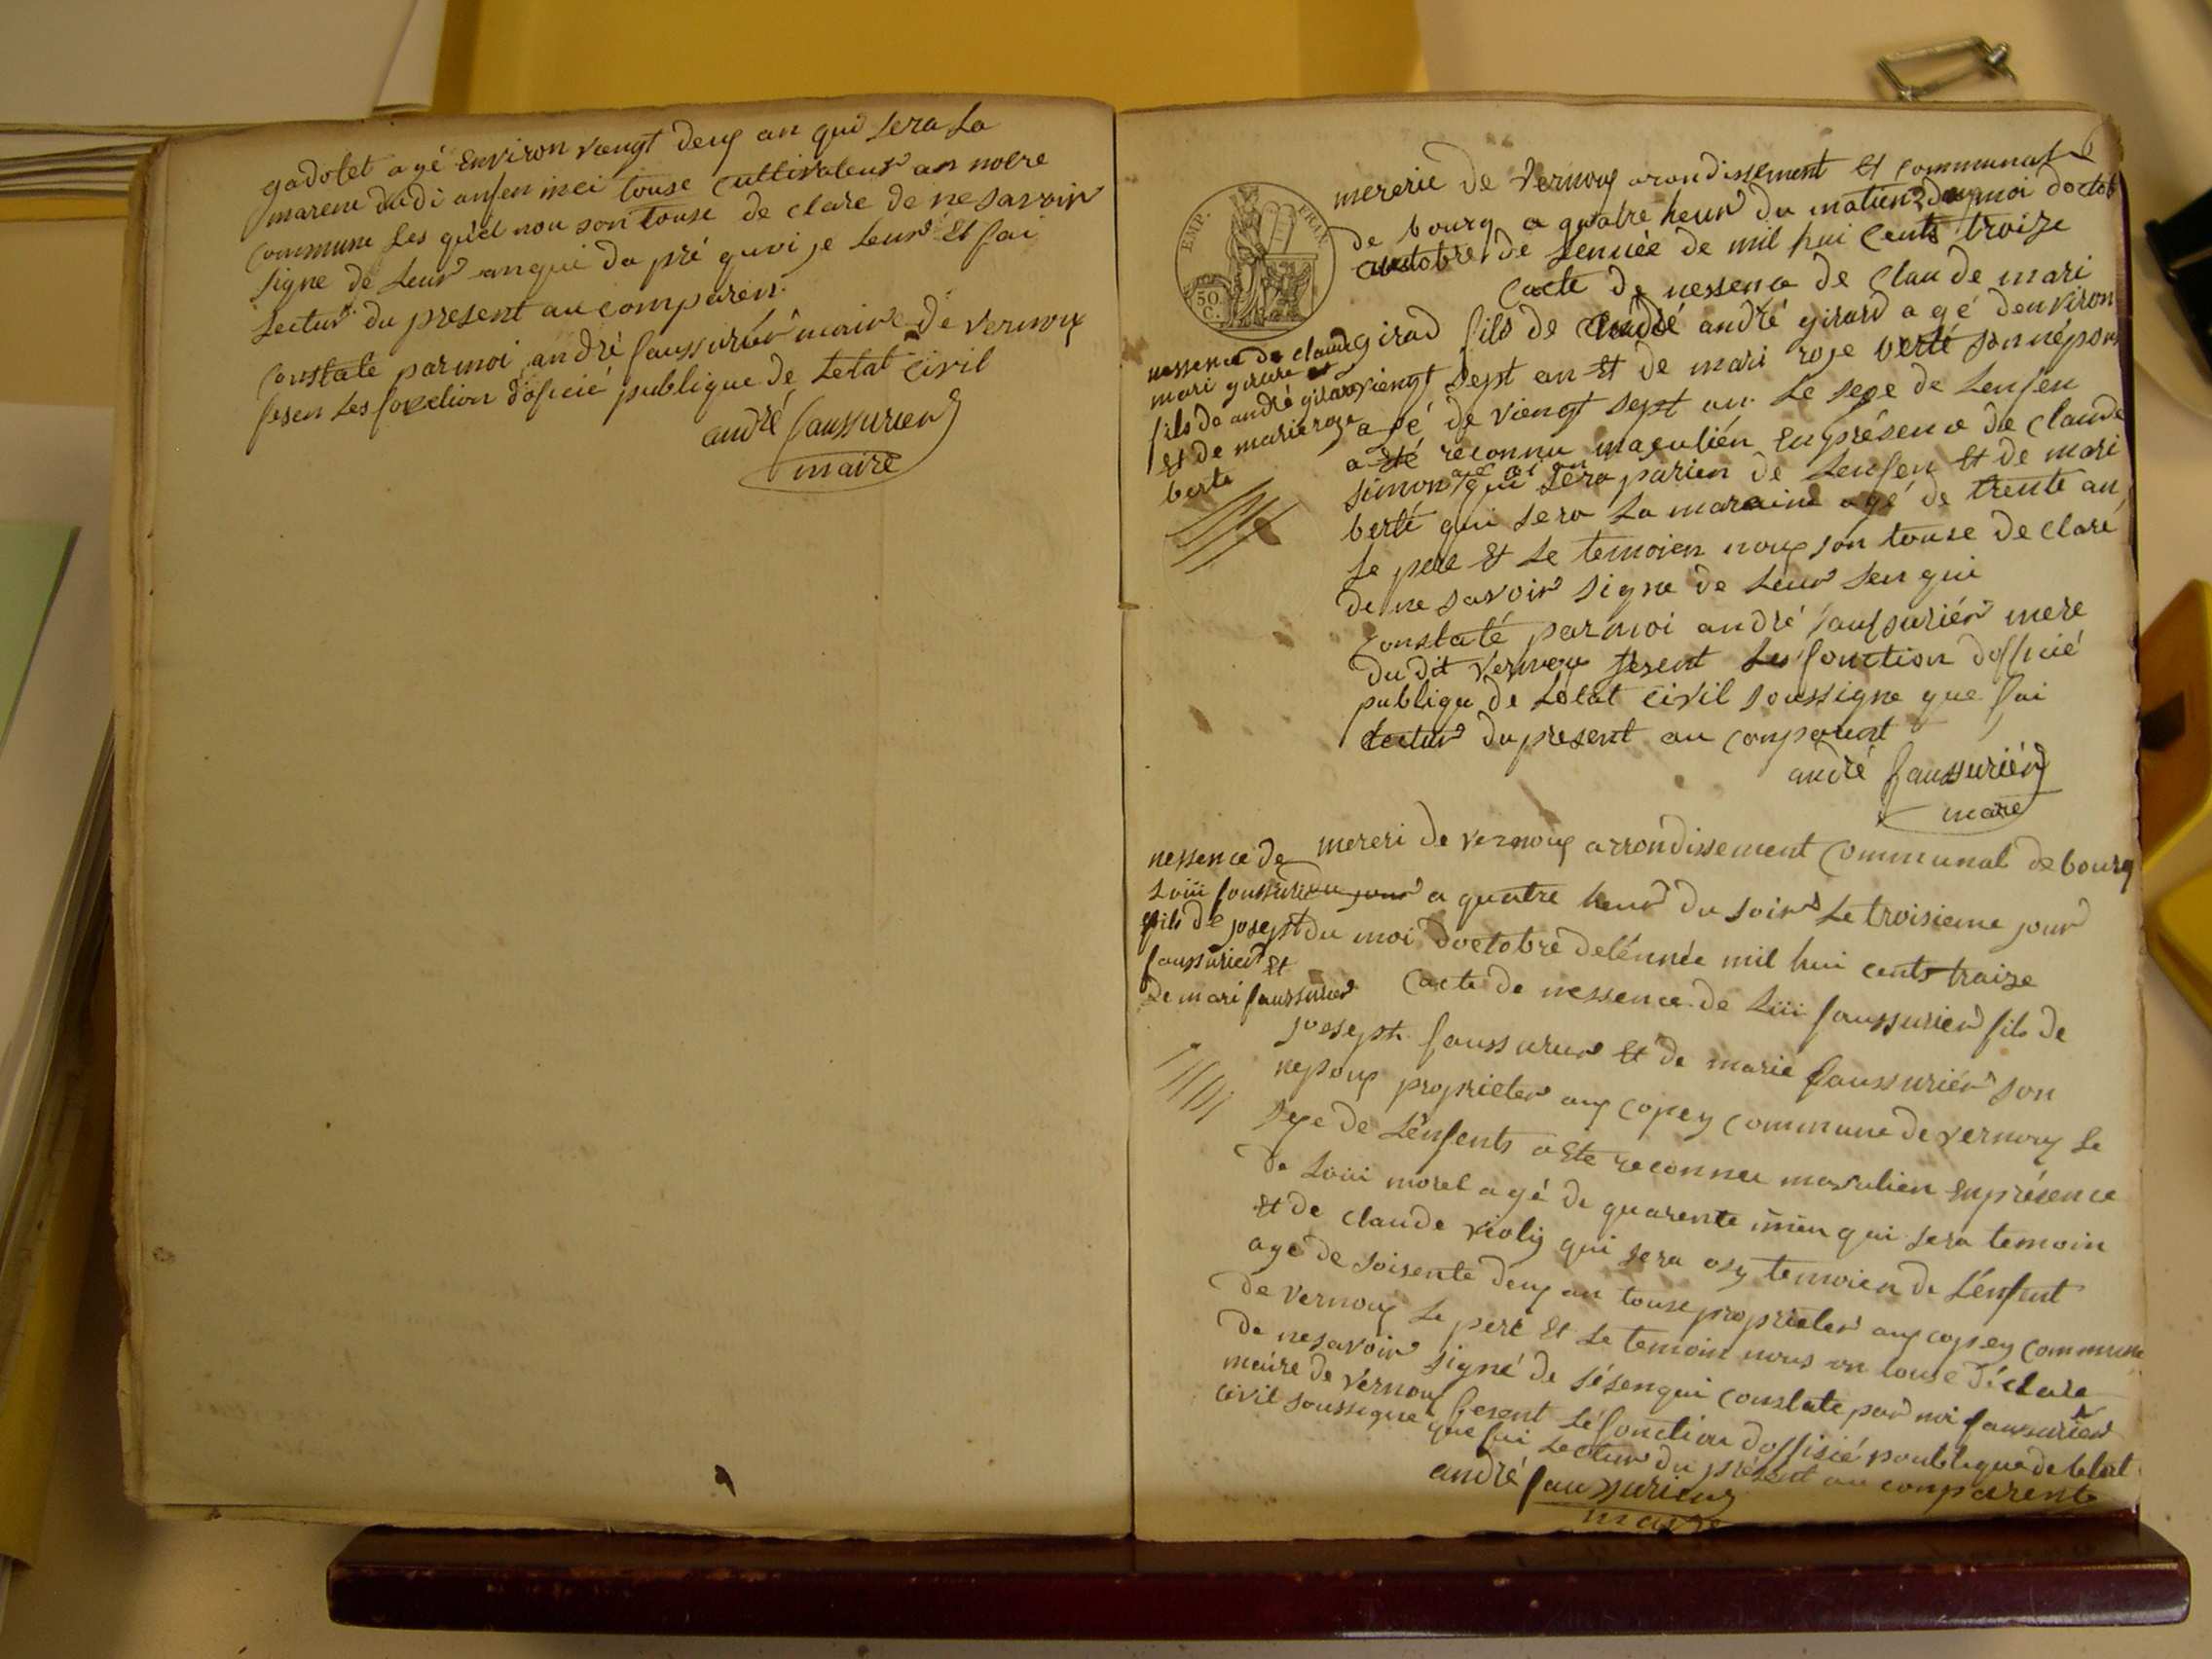 gadolet agé Environ vengt deux an qui sera la
marene dudi anfen inci touse Cultivateur an notre
Commune les quel nou son touse de clare de ne savoir
signe de leur anqui da pré quoi je leur Et fai
lectur du present au comparen
Constate par moi andré faussurier maire de vernoux
fesen les fonction dofficié publique de letat Civil
andré faussurier
maire
6
mererie de Vernoux arondissement Et communal
de bourg a quatre heur du matien du moi doctob
auctobre de lennée de mil hui Cents traize
Cacte de nessence de Claude mari
girad fils de andré girard agé denviron
viengt sept an Et de mari roze berté son népous
agé de viengt sept an le sexe de lenfen
a été reconnu masculién En présence de Claude
simon qui sera parien de lenfen Et de mari
berté qui sera la maraine agé de trente an
le pere Et le temoien noux son touse de claré
de ne savoir signe de leur sen qui
Constaté par moi andré faussuriér mere
du dit Vernoux fesent les fonction dofficié
publique de letat Civil soussigne que fai
lectur du present au comparent
andré faussuriér
maire
nessence de claude
mari girard
fils de andré girard
Et de marie roze
berte
EMP. FROIX
50 C.
mereri de vernoux arrondissement Communal de bourg
a quatre heur du soir le troisieme jour
du moi doctobre delénnée mil hui cents traize
Cacte de nessence de Luii faussurier fils de
Jossepst faussurier Et de marie faussuriér son
nepoux proprieter aux Copey Commune de vernoux le
sexe de Lénfents a Ete reconnu masculien En présence
de Louii morel agé de quarente qui sera temoin
Et de Claude violy qui sera osy temoien de Lénfent
age de soisente deux an touse proprieter aux copey Commune
de vernoux le pere Et le temoin nous on touse déclare
de nesavoir signé de sésenqui Constate par moi faussurier
maire de vernoux fesent lé fonction doffisié poublique de letat
Civil soussigne que fai lectur du présent au comparente
andré faussurier
maire
nessence de
Louii faussurie
fils de josepst
faussurier Et
de mari faussurier